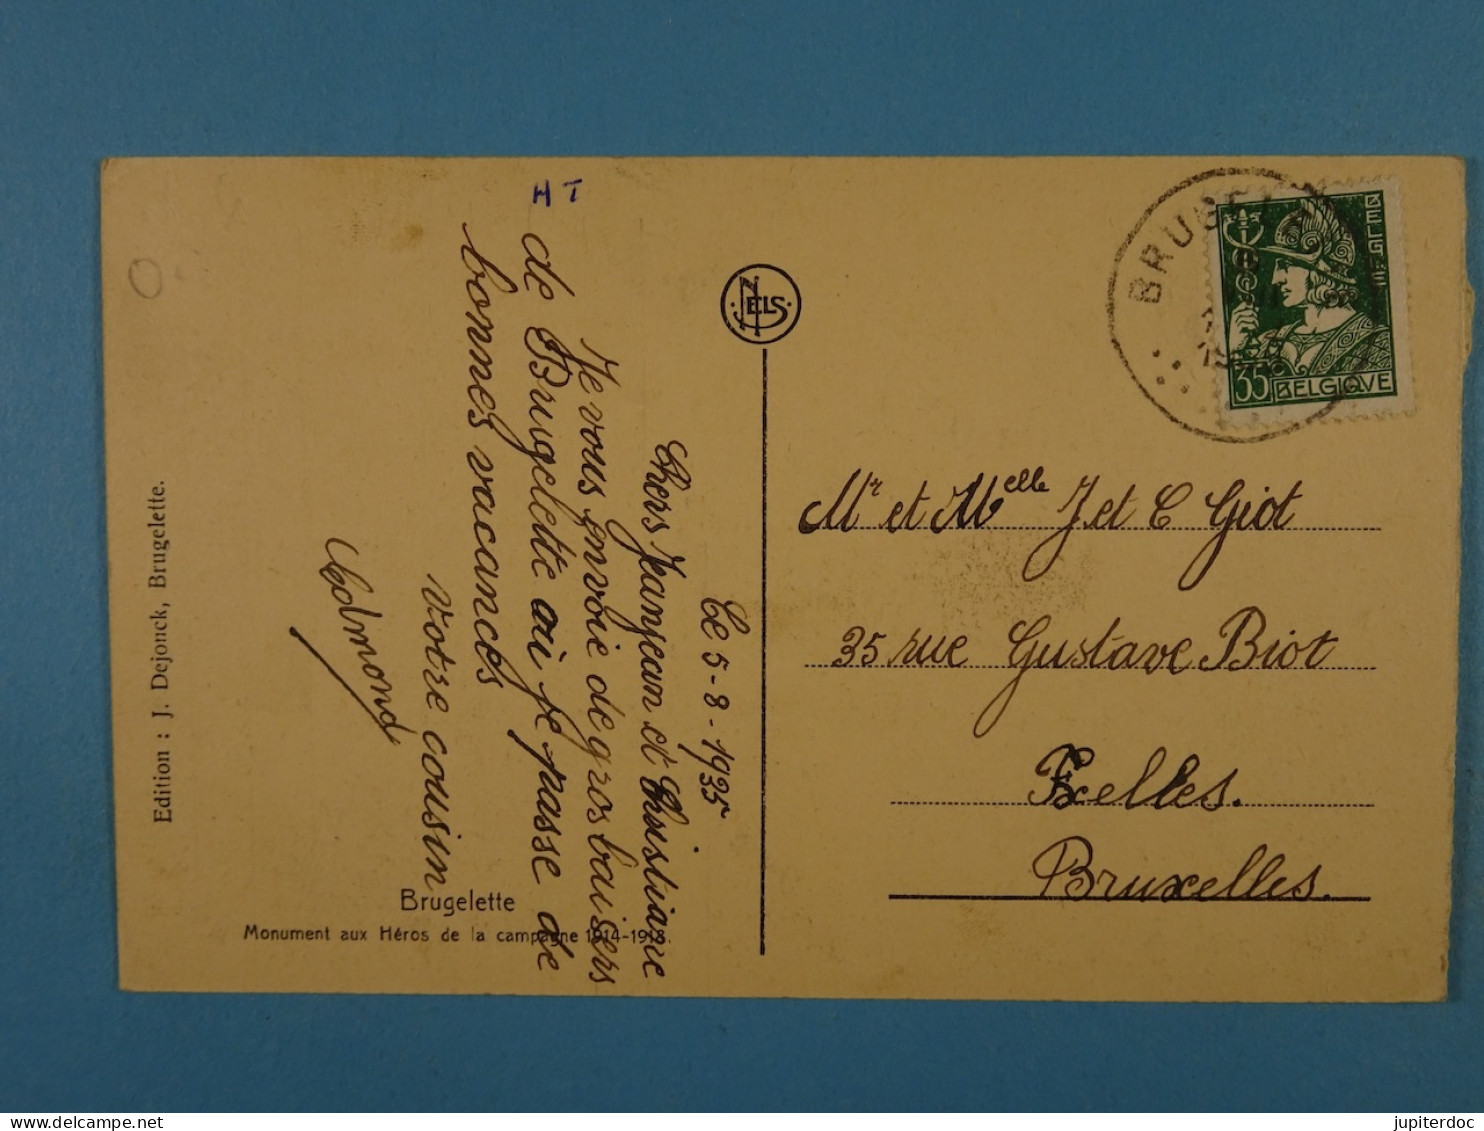 HT
Le 5-8-1935
Chers Jeanjean et Christiane
Je vous envoie de gros baisers
de Brugelette où je passe de
bonnes vacances
votre cousin
Edmond
Edition : J. Dejonck, Brugelette.
Brugelette
Monument aux Héros de la campagne 1914-1918.
NELS
BELGIË
35 BELGIQVE
Mr et Melle J et C Giot
35 rue Gustave Biot
Ixelles.
Bruxelles.
jupiterdoc